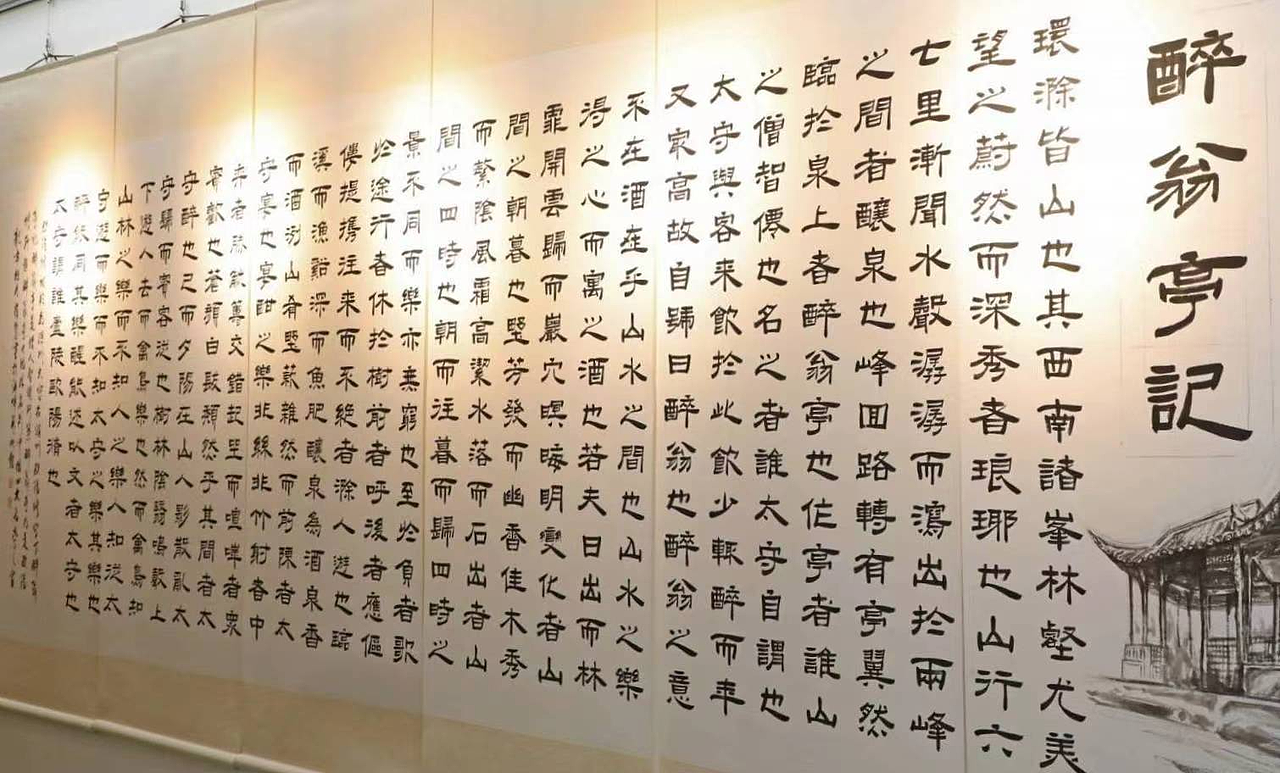 醉翁亭記
環滁皆山也其西南諸峯林壑尤美
望之蔚然而深秀者琅琊也山行六
七里漸聞水聲潺潺而瀉出於兩峰
之間者釀泉也峰回路轉有亭翼然
臨於泉上者醉翁亭也作亭者誰山
之僧智僊也名之者誰太守自謂也
太守與客來飲於此飲少輒醉而年
又最高故自號曰醉翁也醉翁之意
不在酒在乎山水之間也山水之樂
得之心而寓之酒也若夫日出而林
霏開雲歸而巖穴暝晦明變化者山
間之朝暮也野芳發而幽香佳木秀
而繁陰風霜高潔水落而石出者山
間之四時也朝而往暮而歸四時之
景不同而樂亦無窮也至於負者歌
於途行者休於樹前者呼後者應傴
僂提攜往來而不絕者滁人遊也臨
溪而漁谿深而魚肥釀泉為酒泉香
而酒洌山肴野蔌雜然而前陳者太
守宴也宴酣之樂非絲非竹射者中
弈者勝觥籌交錯起坐而喧嘩者眾
賓歡也蒼顏白髮頹然乎其間者太
守醉也已而夕陽在山人影散亂太
守歸而賓客從也樹林陰翳鳴聲上
下遊人去而禽鳥樂也然而禽鳥知
山林之樂而不知人之樂人知從太
守遊而樂而不知太守之樂其樂也
醉能同其樂醒能述以文者太守也
太守謂誰廬陵歐陽脩也